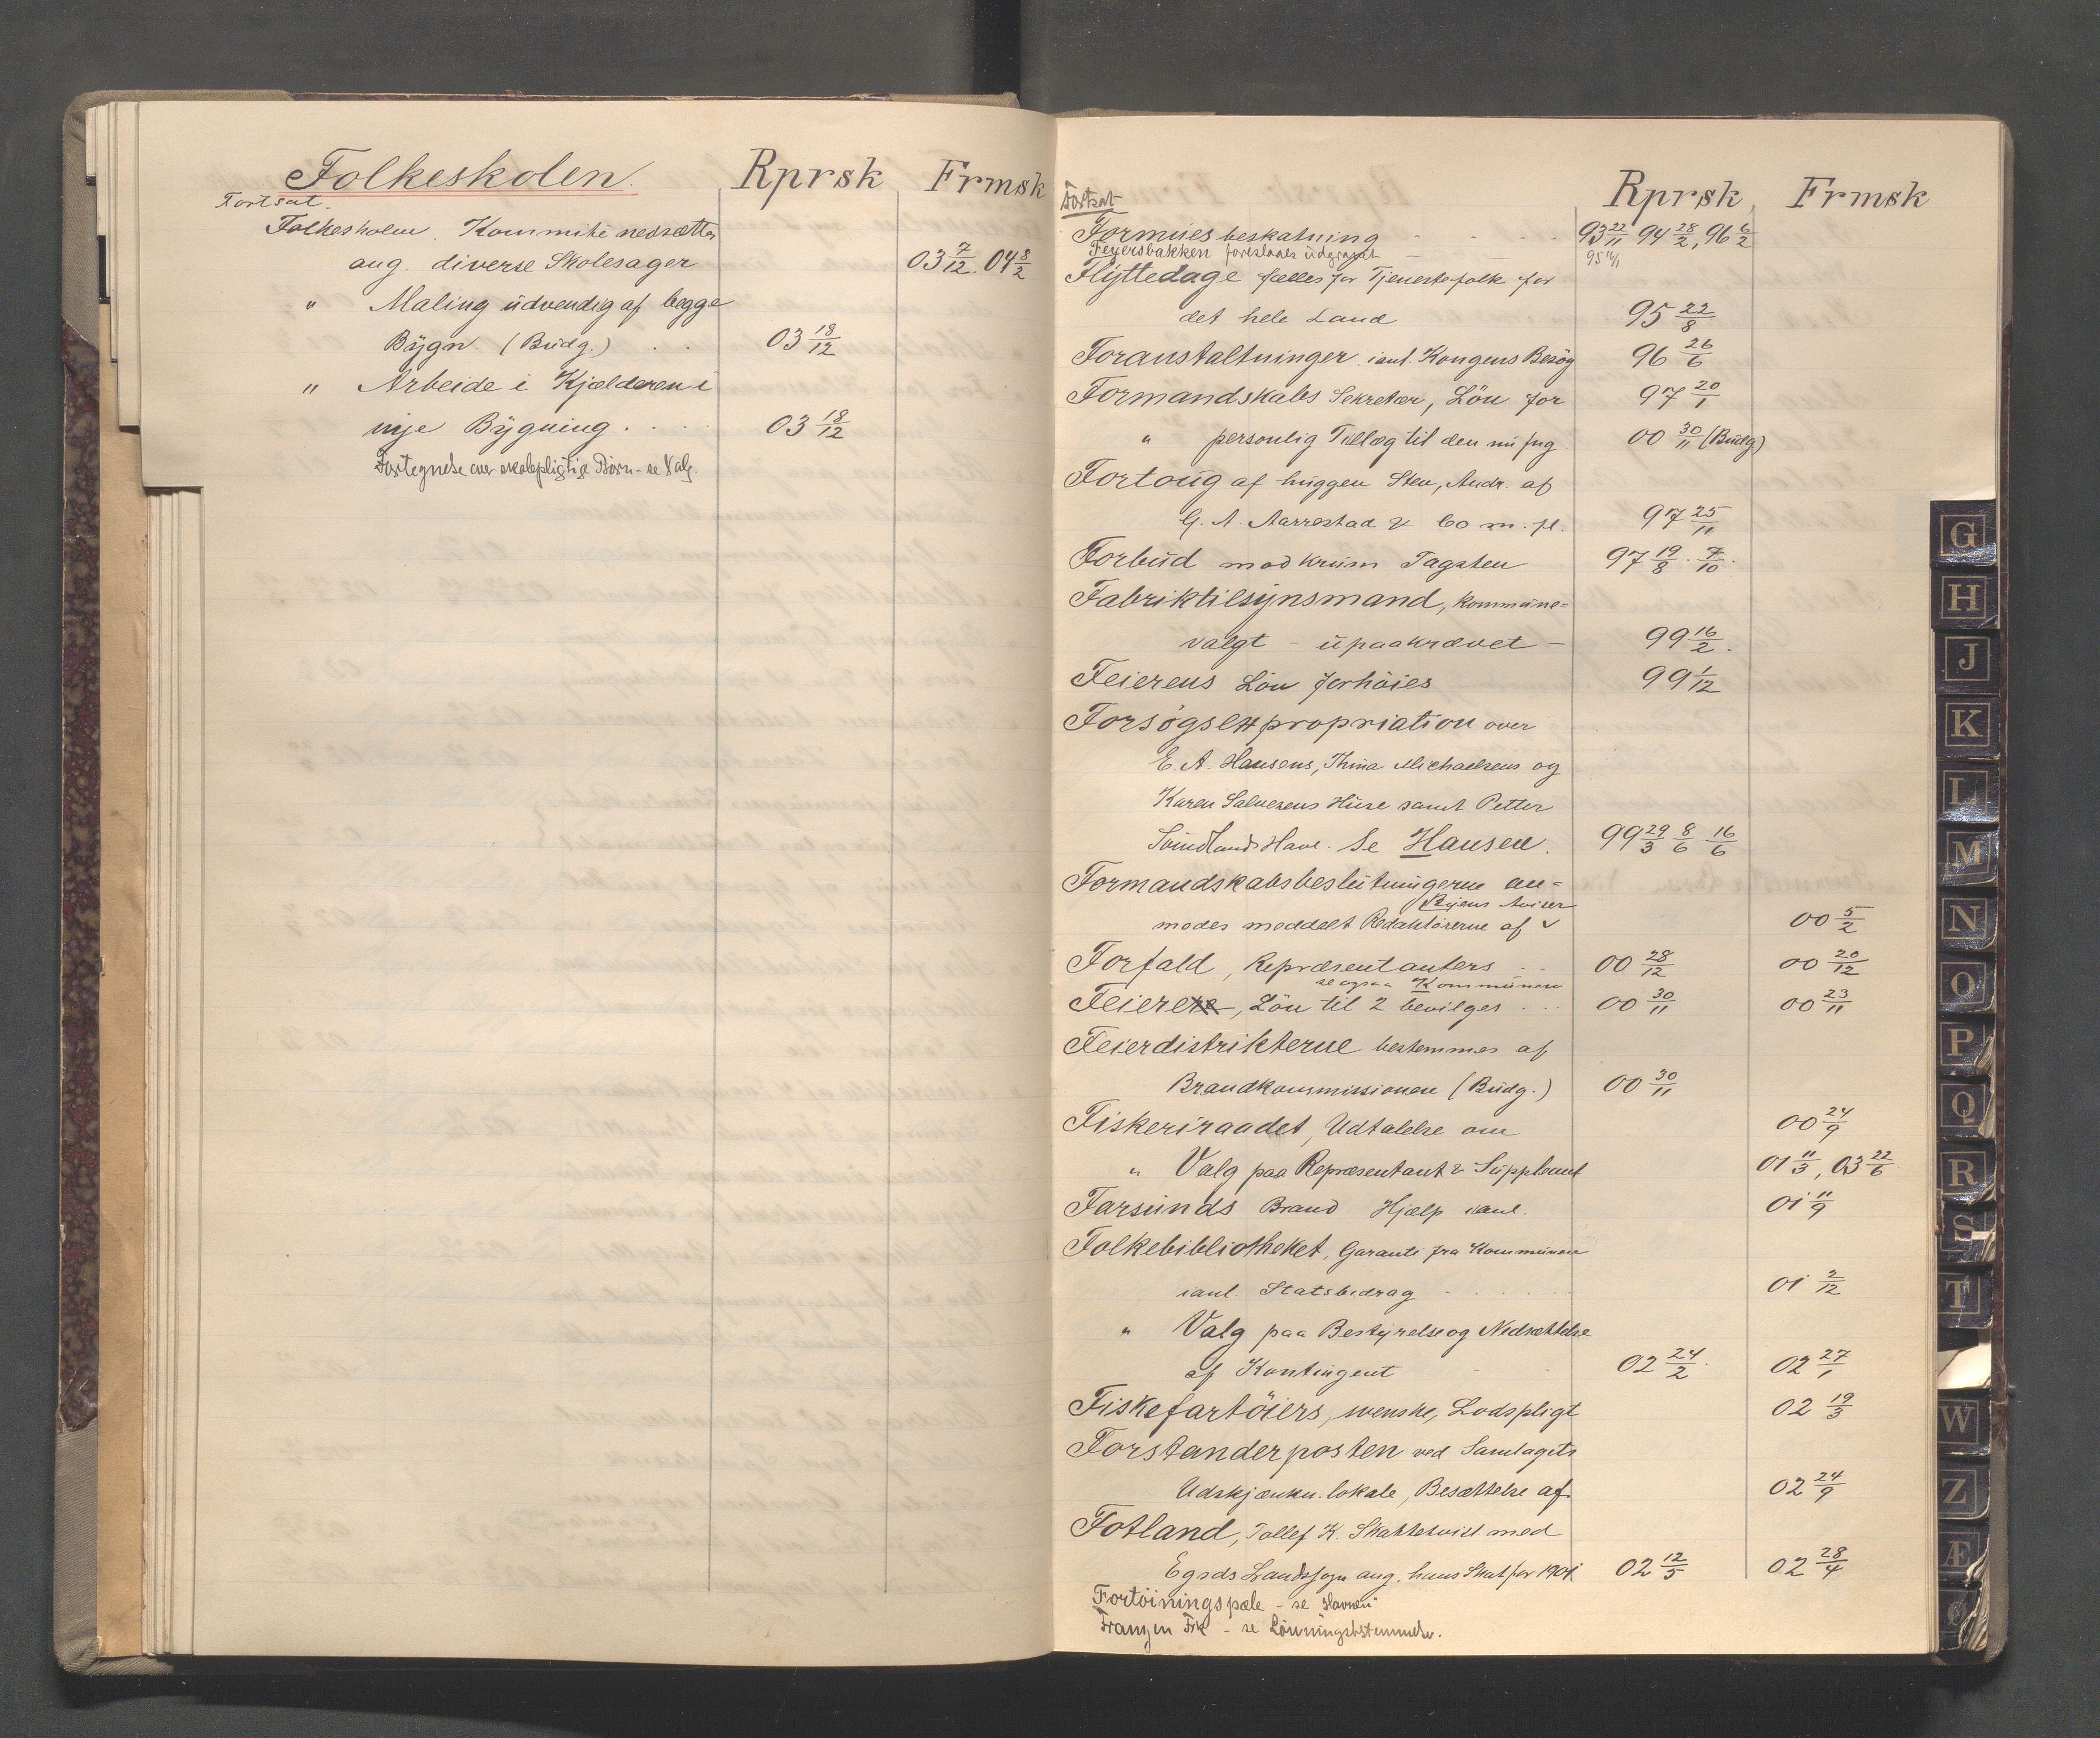 Folkeskolen. Rprsk Frmsk
Fortsat.
Folkeskolen. Kommité nedsættes
ang. diverse Skolesager 03 7/12. 04 8/2
" Maling udvendig af begge
Bygn. (Budg.) . . 03 18/12
" Arbeide i Kjælderen i
nye Bygning . . . 03 18/12
Fortegnelse over skolepligtige Børn - se Valg.
Fortsat Rprsk Frmsk
Formuesbeskatning - - - 93 22/11 94 28/2, 96 6/2
Feyersbakken foreslaaes udgravet — — 95 16/1
Flyttedage fælles for Tjenestefolk for
det hele Land 95 22/8
Foranstaltninger ianl. Kongens Besøg 96 26/6
Formandskabs Sekretær, Løn for 97 20/1
" personlig Tillæg til den nu fng. 00 30/11 (Budg)
Fortoug af huggen Sten, Andr. af
G. A. Aarrestad & Co m. fl. 97 25/11
Forbud mod krum Tagsten 97 19/8 . 7/10.
Fabriktilsynsmand, kommune=
valgt - upaakrævet - 99 16/2.
Feierens Løn forhøies 99 1/12
Forsøgsexpropriation over
E. A. Hansens, Thina Michaelsens og
Karen Salvesens Huse samt Petter
Svindlands Have. Se Hansen. 99 29/3 8/6 16/6
Formandskabsbeslutningerne an=
Byens Aviser
modes meddelt Redaktørerne af ✓ 00 5/2
Forfald, Repræsentanters - - 00 28/12 00 20/12
se ogsaa Kommunen
Feiere, Løn til 2 bevilges . . . 00 30/11 00 23/11
Feierdistrikterne bestemmes af
Brandkommissionen (Budg.) 00 30/11
Fiskeriraadet, Udtalelse om 00 24/9
" Valg paa Repræsentant & Suppleant 01 11/3, 03 22/6
Farsunds Brand Hjælp ianl. 01 11/9
Folkebibliotheket, Garanti fra Kommunen
ianl. Statsbidrag . . . . . 01 2/12
" Valg paa Bestyrelse og Nedsættelse
af Kontingent - - 02 24/2. 02 27/1
Fiskefartøiers, svenske, Lodspligt 02 19/3
Forstanderposten ved Samlagets
Udskjænkn. lokale, Besættelse af. 02 24/9
Fotland, Tollef K. Skattetvist med
Egsds Landssogn ang. hans Skat for 1901 02 12/5 02 28/4
Fortøiningspæle - se "Havnen"
Frk - se Lønningsbestemmelse.
G
H
J
K
L
M
N
O
P
Q
R
S
T
W
Z
Æ
Ø